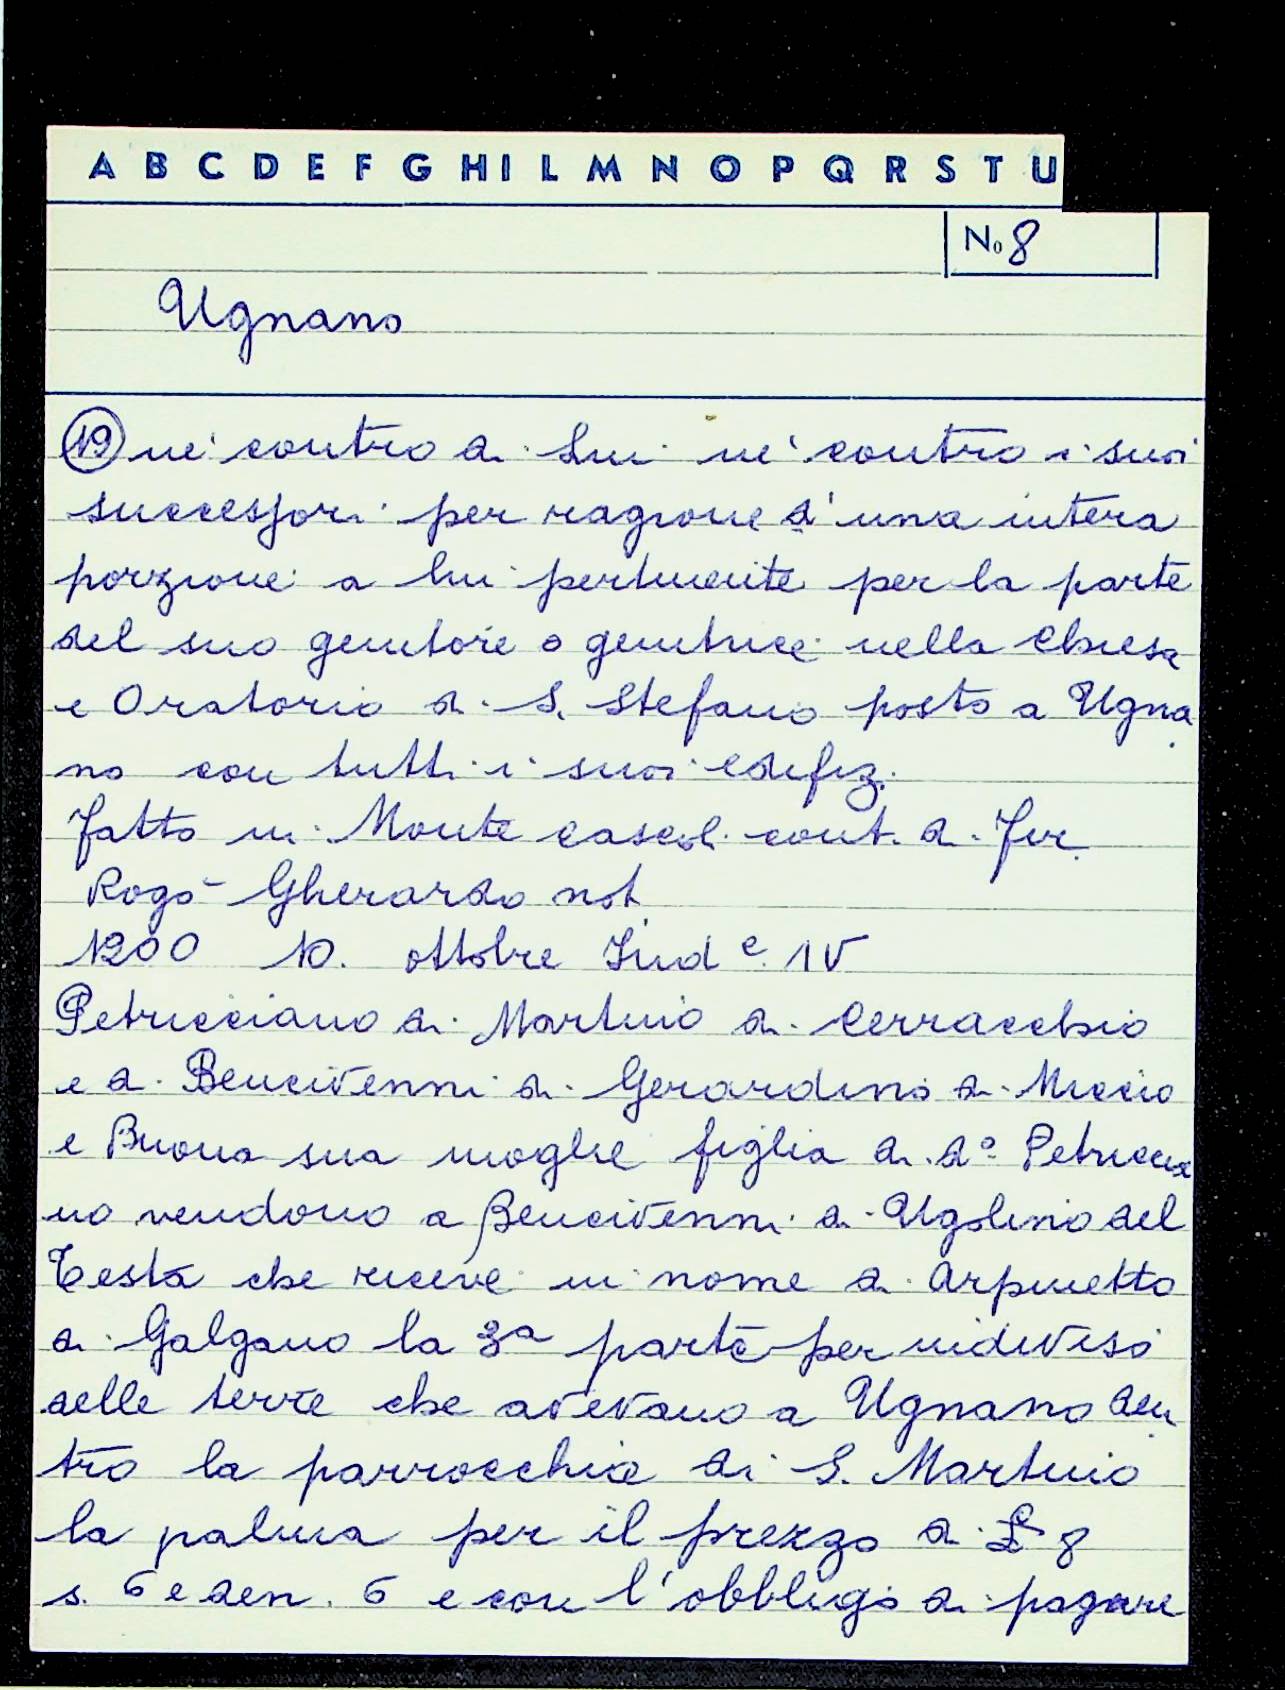 A B C D E F G H I L M N O P Q R S T U
No 8
Ugnano
19 nè contro di Lui nè contro i suoi
successori per ragione d'una intera
porzione a lui pertinente per la parte
del suo genitore o genitrice nella Chiesa
e Oratorio di S. Stefano posto a Ugna
no con tutti i suoi edifiz.
Fatto in Monte cascol. cont. di Fir.
Rogò Gherardo not.
1200 10. ottobre Ind e. IV
Petrucciano di Martino di Cerracchio
e di Bencivenni di Gerardino di Miccio
e Buona sua moglie figlia di do Petruccia
no vendono a Bencivenni di Ugolino del
Testa che riceve in nome di Arpinetto
di Galgano la 3a parte per indiviso
delle terre che avevano a Ugnano den
tro la parrocchia di S. Martino
la palma per il prezzo di £ 8
s. 6 e den. 6 e con l'obbligo di pagare